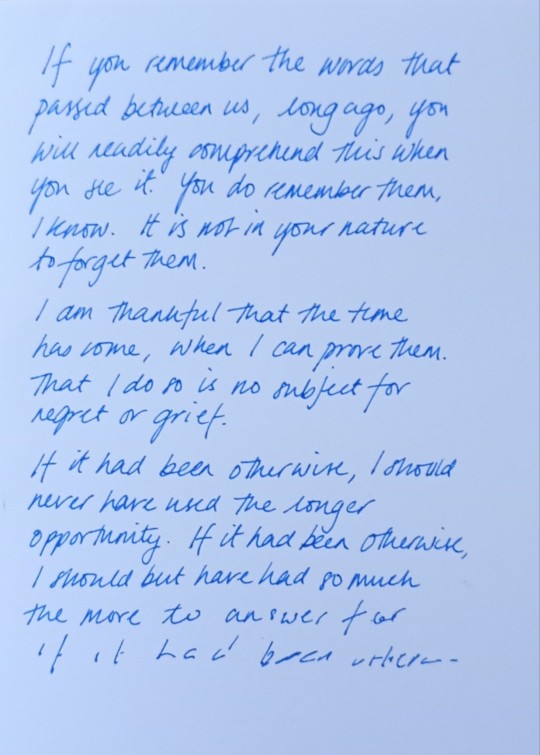 If you remember the words that
passed between us, long ago, you
will readily comprehend this when
you see it. You do remember them,
I know. It is not in your nature
to forget them.
I am thankful that the time
has come, when I can prove them.
That I do so is no subject for
regret or grief.
If it had been otherwise, I should
never have used the longer
opportunity. If it had been otherwise,
I should but have had so much
the more to answer for
if it had been